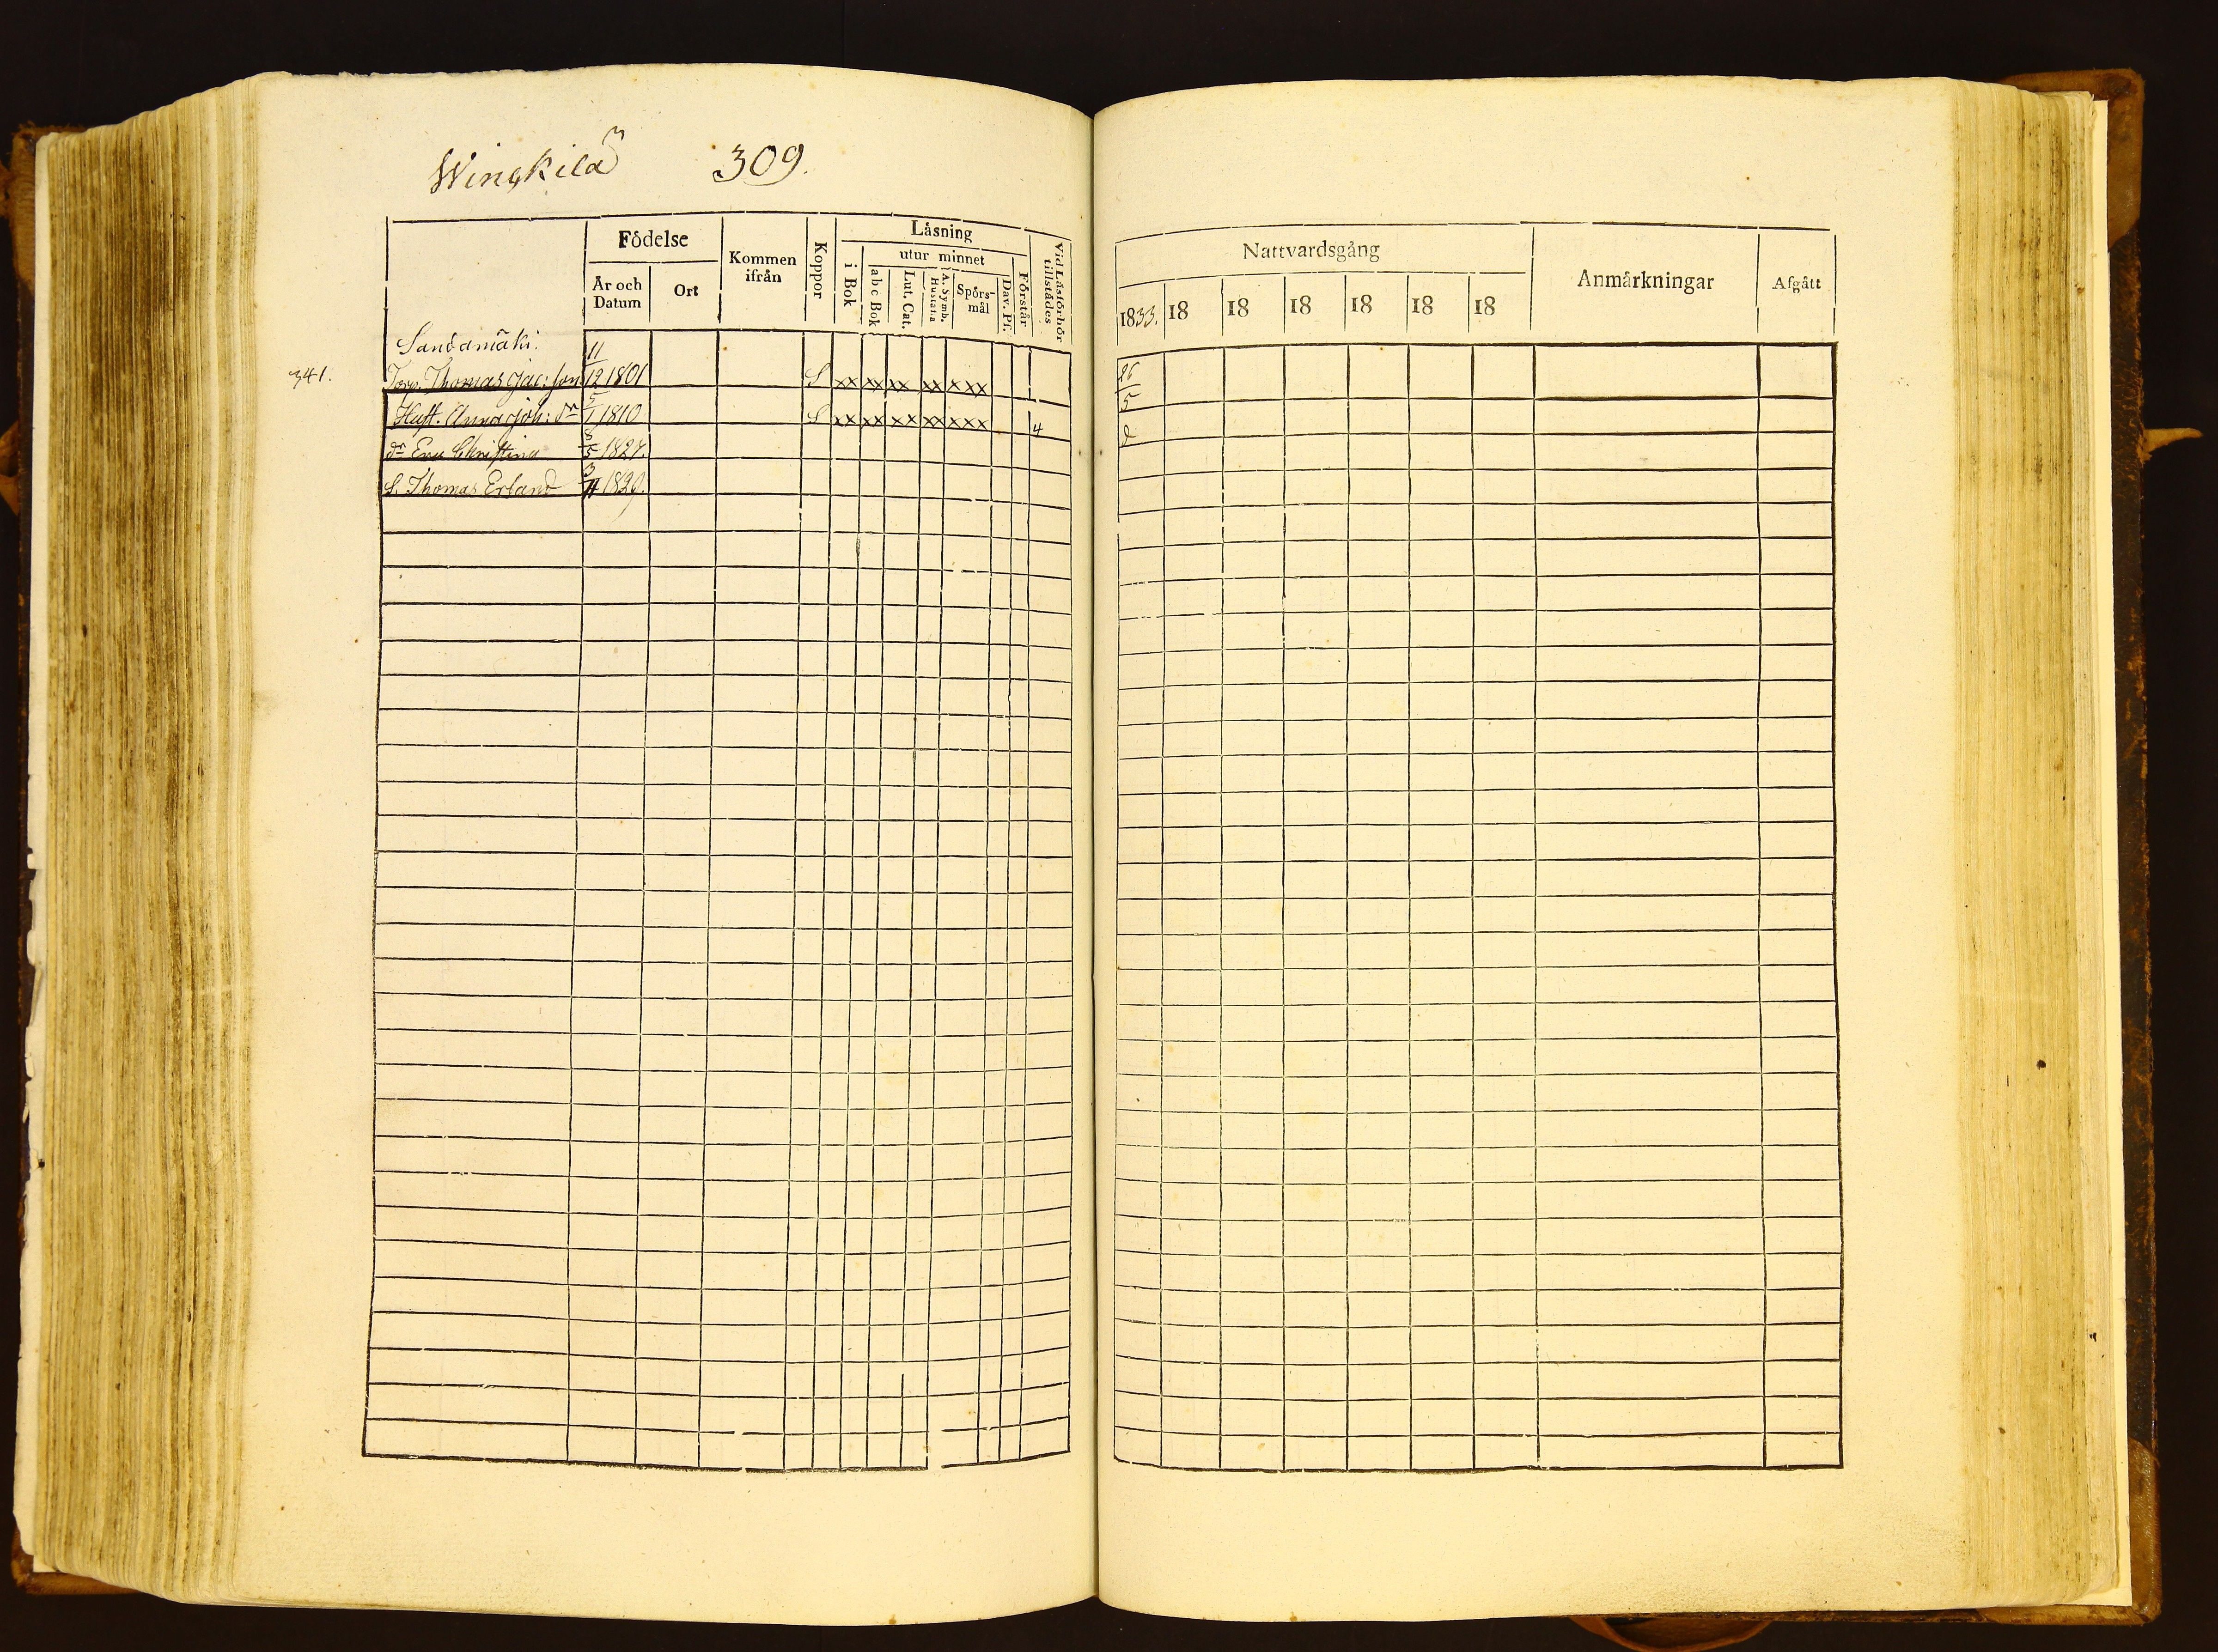 Wingkilä 309.
Födelse
År och Datum
Ort
Kommen ifrån
Koppor
Läsning
utur minnet
i Bok
abc Bok
Lut. Cat.
A. Symb. Hustafla
Spörs-mål
Dav. Ps.
Förstår
Vid Läsförhör tillstädes
Nattvardsgång
1833. 18 18 18 18 18 18
Anmärkningar
Afgått
Sandamäki.
341. Torp. Thomas Jac: son 11/12 1801 S xx xx xx xx x xx 26/5
Hust. Anna Joh: dr 5/1 1810 S xx xx xx xx xxx 4 d
dr Eva Christina 8/5 1827.
S. Thomas Erland 3/11 1829.